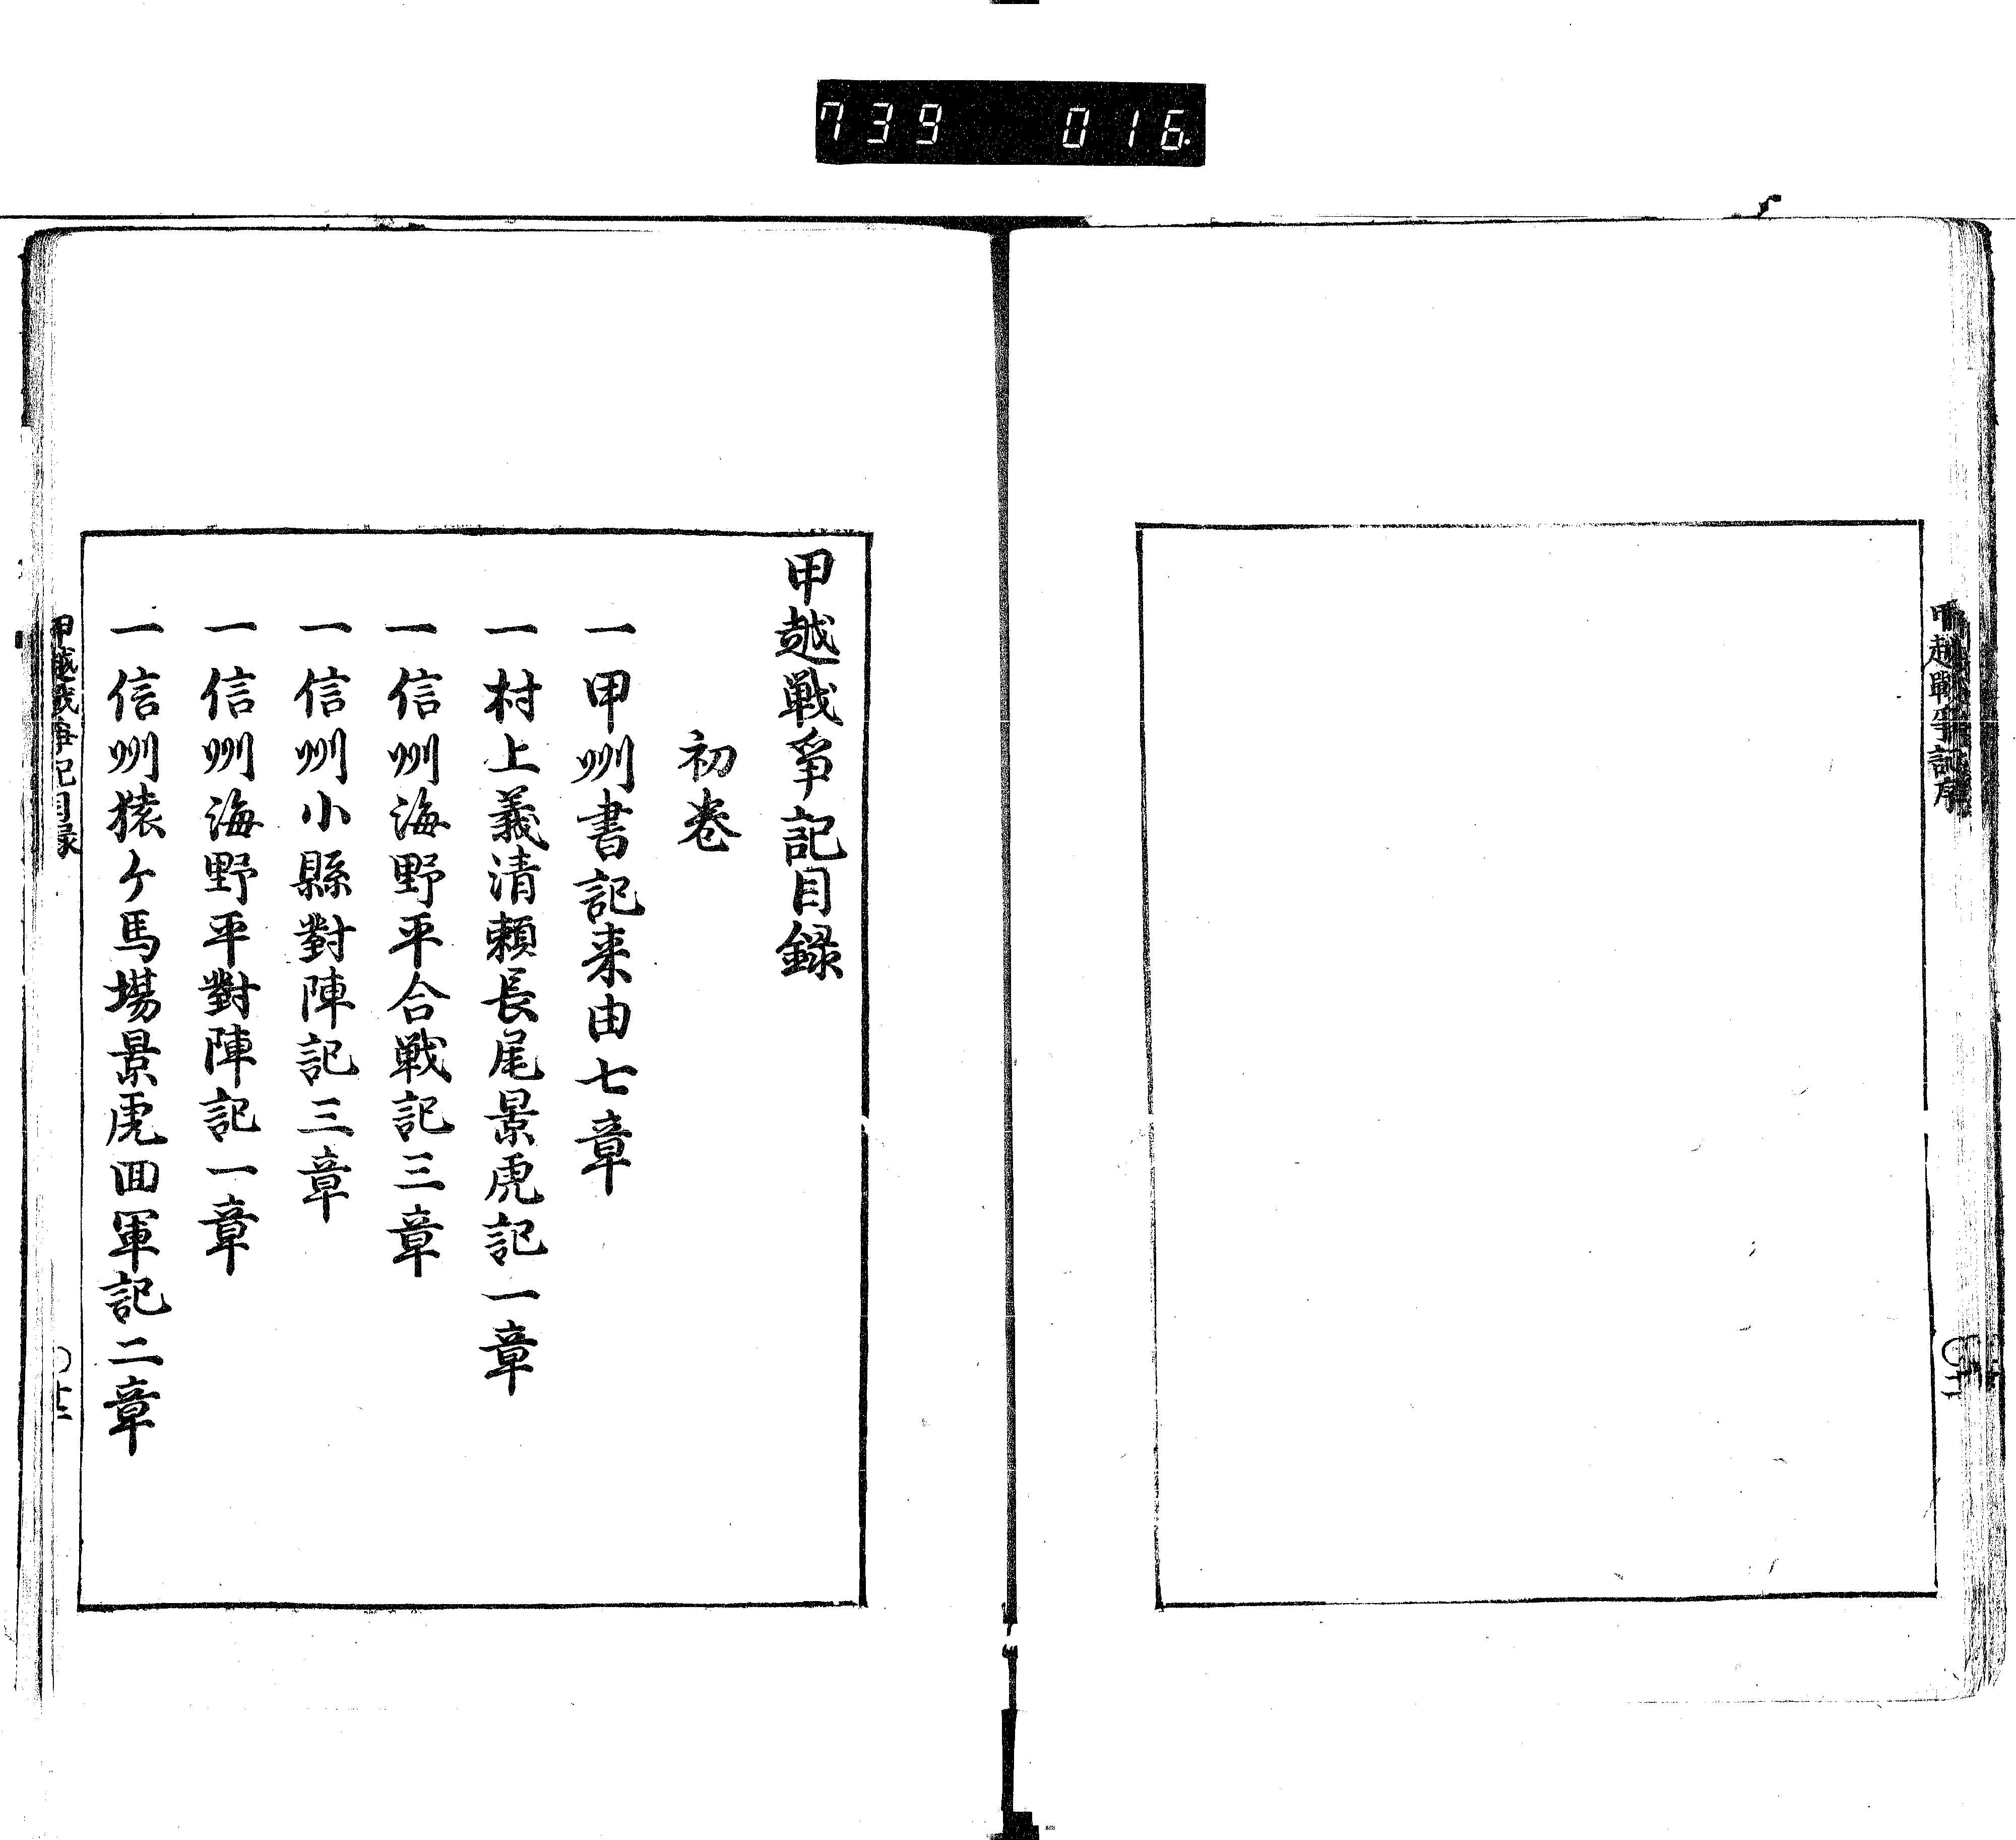 739 016
甲越戰爭記序
甲越戦爭記目録
初巻
一 甲州書記来由七章
一 村上義清頼長尾景虎記一章
一 信州海野平合戦記三章
一 信州小縣對陣記三章
一 信州海野平對陣記一章
一 信州猿ケ馬場景虎囬軍記二章
甲越戦爭記目録